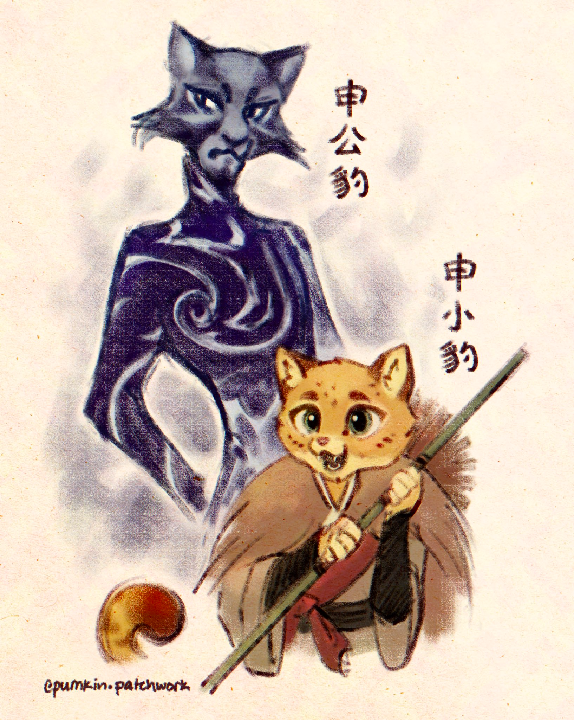 申公豹
申小豹
@pumkin.patchwork